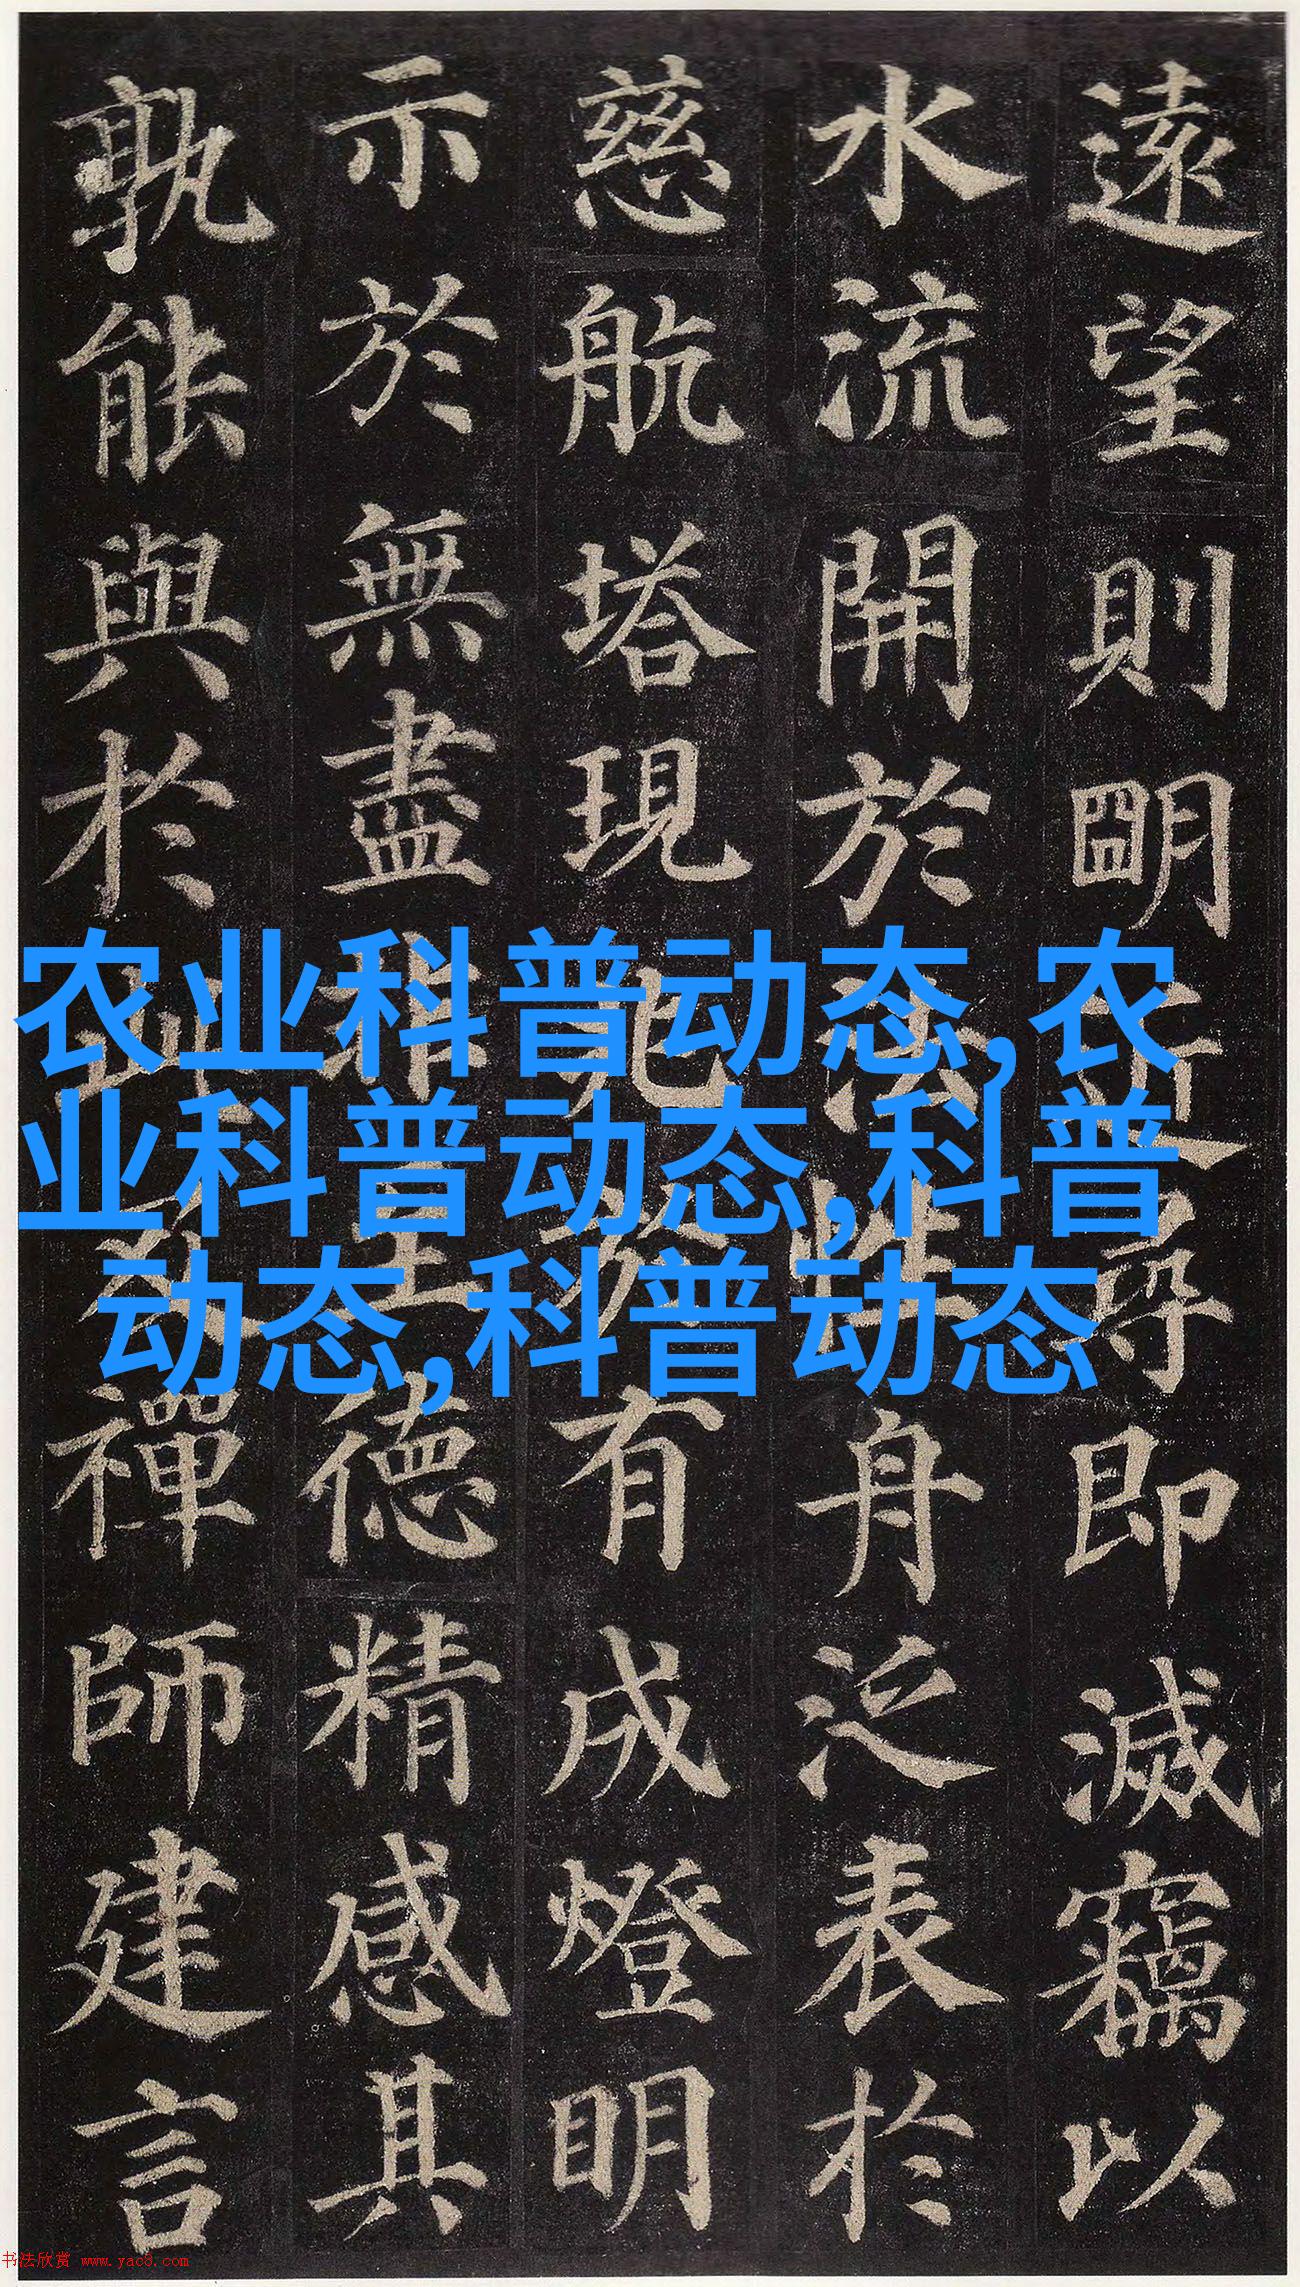 遠望則朙近尋即滅竊以
水流開於法性舟泛表於
慈航塔現兆於有成燈明
示於無盡非至德精感其
孰能與於此及禪師建言
农业科普动态,农
业科普动态,科普
动态,科普动态
书法欣赏 www.yac8.com